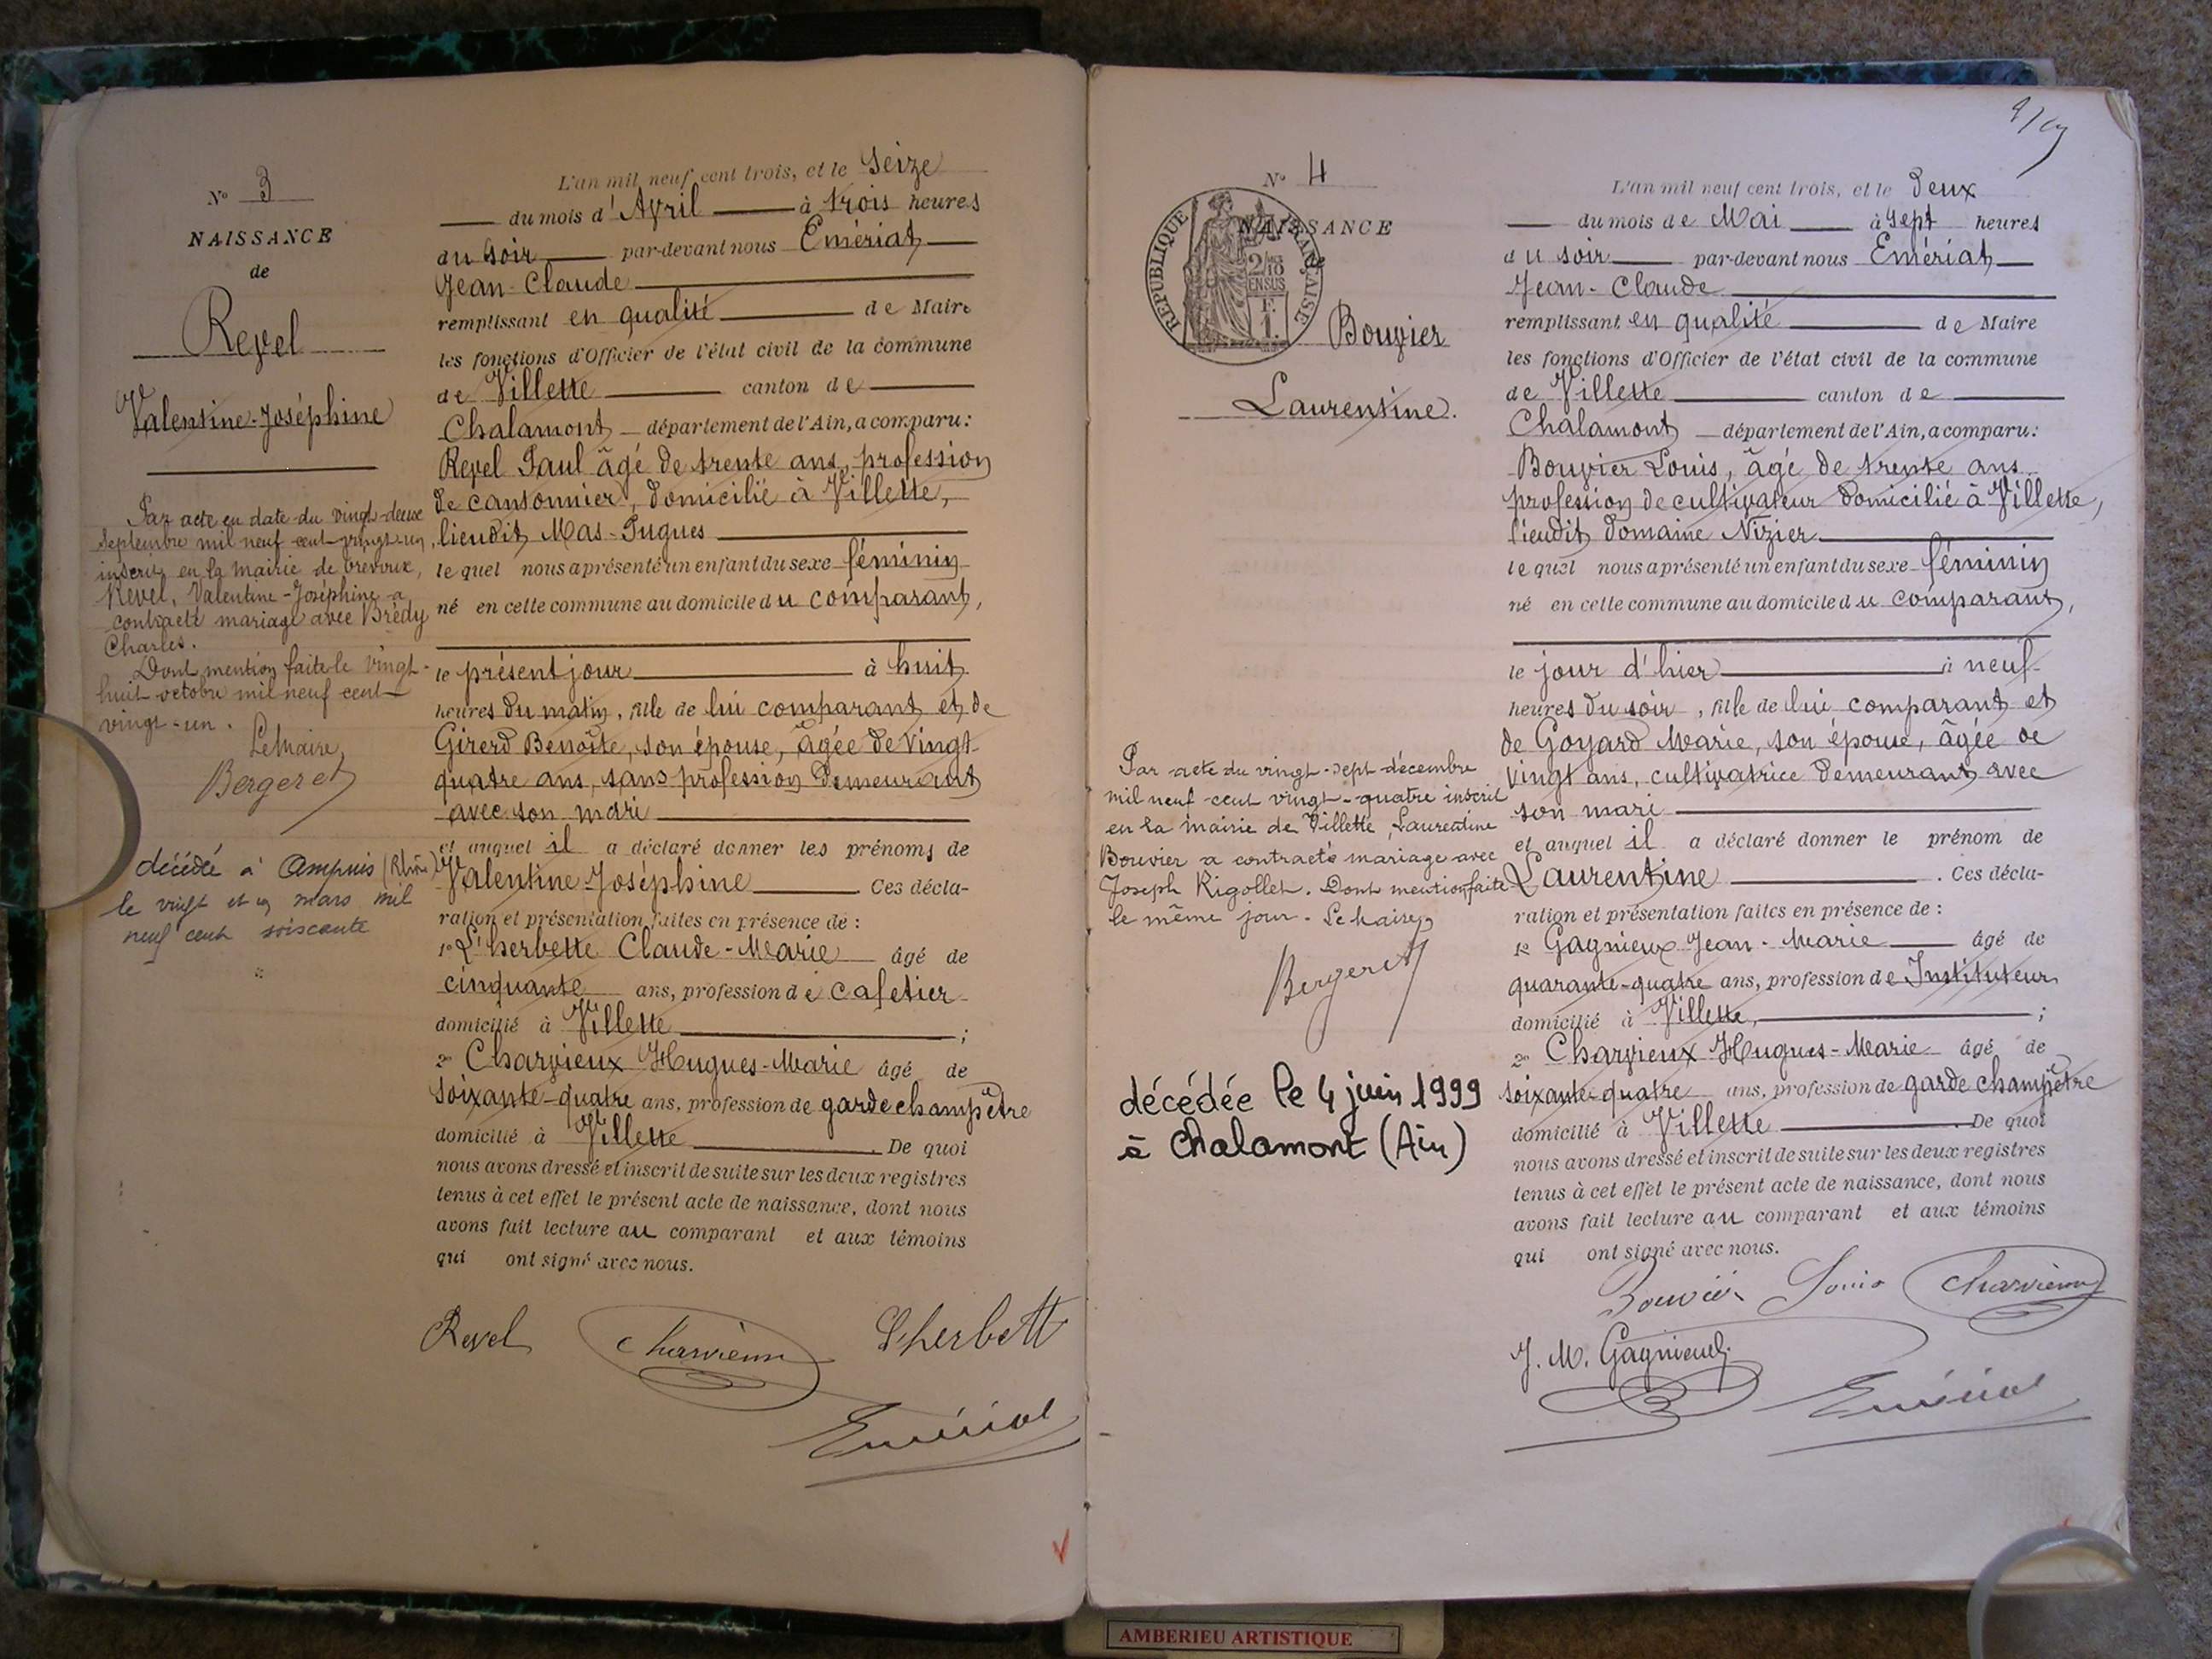 N° 3
NAISSANCE
de
Revel
Valentine-Joséphine
Par acte en date du vingt-deux
Septembre mil neuf cent vingt-un,
inscrit en la mairie de Trévoux,
Revel, Valentine-Joséphine a
contracté mariage avec Brédy
Charles.
Dont mention faite le vingt-
huit octobre mil neuf cent
vingt-un.
Le Maire,
Bergeret
décédé à Ampuis (Rhône)
le vingt et un mars mil
neuf cent soixante
L'an mil neuf cent trois, et le Seize
du mois d'Avril à trois heures
du soir par-devant nous Emériat
Jean-Claude
remplissant en qualité de Maire
les fonctions d'Officier de l'état civil de la commune
de Villette canton de
Chalamont département de l'Ain, a comparu:
Revel Paul âgé de trente ans, profession
de cantonnier, domicilié à Villette,
lieudit Mas-Pugues
le quel nous a présenté un enfant du sexe féminin
né en cette commune au domicile du comparant,
le présent jour à huit
heures du matin, fille de lui comparant et de
Girerd Benoîte, son épouse, âgée de vingt-
quatre ans, sans profession demeurant
avec son mari
et auquel il a déclaré donner les prénoms de
Valentine Joséphine Ces décla-
ration et présentation faites en présence de :
1° L'herbette Claude-Marie âgé de
cinquante ans, profession de cafetier
domicilié à Villette ;
2° Charvieux Hugues-Marie âgé de
soixante-quatre ans, profession de garde champêtre
domicilié à Villette De quoi
nous avons dressé et inscrit de suite sur les deux registres
tenus à cet effet le présent acte de naissance, dont nous
avons fait lecture au comparant et aux témoins
qui ont signé avec nous.
Revel Charvieux L'herbett
Emériat
N° 4
NAISSANCE
REPUBLIQUE FRANÇAISE
2/10
EN SUS
F.
1.
Bouvier
Laurentine.
Par acte du vingt-sept décembre
mil neuf cent vingt-quatre inscrit
en la mairie de Villette, Laurentine
Bouvier a contracté mariage avec
Joseph Rigollet. Dont mention faite
le même jour. Le Maire,
Bergeret
décédée le 4 juin 1999
à Chalamont (Ain)
L'an mil neuf cent trois, et le Deux
du mois de Mai à sept heures
du soir par-devant nous Emériat
Jean-Claude
remplissant en qualité de Maire
les fonctions d'Officier de l'état civil de la commune
de Villette canton de
Chalamont département de l'Ain, a comparu:
Bouvier Louis, âgé de trente ans
profession de cultivateur domicilié à Villette,
lieudit Domaine Nizier
le quel nous a présenté un enfant du sexe féminin
né en cette commune au domicile du comparant,
le jour d'hier à neuf
heures du soir, fille de lui comparant et
de Goyard Marie, son épouse, âgée de
vingt ans, cultivatrice demeurant avec
son mari
et auquel il a déclaré donner le prénom de
Laurentine . Ces décla-
ration et présentation faites en présence de :
1° Gagnieux Jean-Marie âgé de
quarante-quatre ans, profession de Instituteur
domicilié à Villette, ;
2° Charvieux Hugues-Marie âgé de
soixante-quatre ans, profession de garde champêtre
domicilié à Villette . De quoi
nous avons dressé et inscrit de suite sur les deux registres
tenus à cet effet le présent acte de naissance, dont nous
avons fait lecture au comparant et aux témoins
qui ont signé avec nous.
Bouvier Louis Charvieux
J. M. Gagnieux
Emériat
AMBERIEU ARTISTIQUE